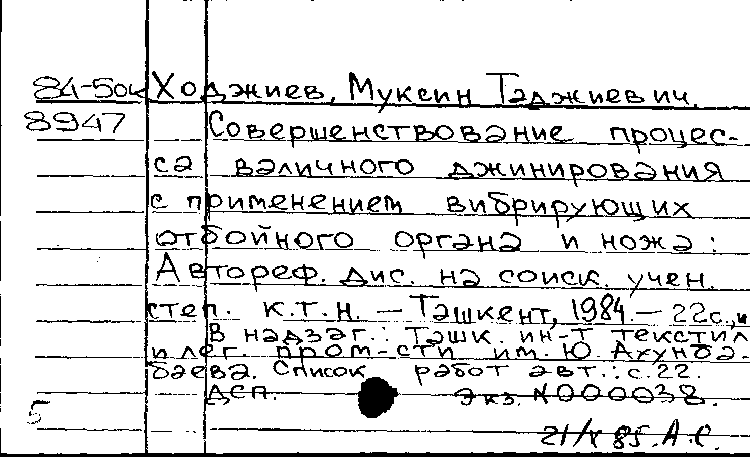 84-5ок Ходжиев, Муксин Таджиевич.
8947 Совершенствование процес-
са валичного джинирования
с применением вибрирующих
отбойного органа и ножа :
Автореф. дис. на соиск. учен.
степ. к.т.н. — Ташкент, 1984. — 22с., и
В надзаг.: Ташк. ин-т текстил
и лег. пром-сти им. Ю. Ахунба-
баева. Список работ авт.: с.22.
ДСП. Экз. N000038.
5
21/X 85. А.С.